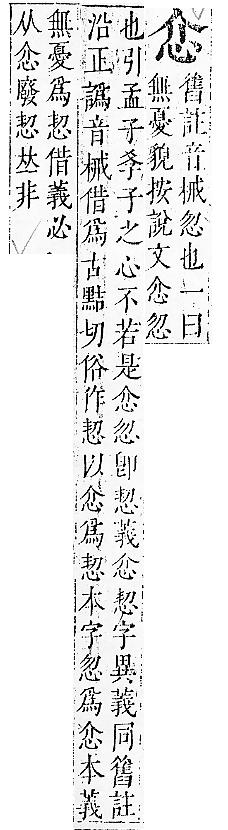 ⿱介心
舊註音械忽也一曰
無憂貌按說文⿱介心忽
也引孟子孝子之心不若是⿱介心忽卽恝義⿱介心恝字異義同舊註
沿正譌音械借爲古黠切俗作恝以⿱介心爲恝本字忽爲⿱介心本義
無憂爲恝借義必
从⿱介心廢恝𠀤非